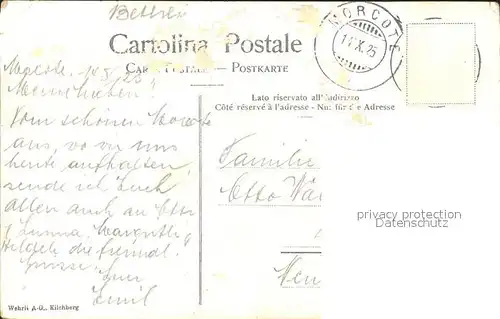 Cartolina Postale
CARTE POSTALE - POSTKARTE
MORCOTE
11.X.25
Lato riservato all'indirizzo
Côté réservé à l'adresse - Nur für die Adresse
Meine Lieben!
Vom schönen Morcote
aus, wo wir uns
heute aufhalten,
sende ich Euch
allen auch an Otto
die freundl.
Grüsse. Euer
Emil
Familie
Otto
privacy protection
Wehrli A.-G., Kilchberg